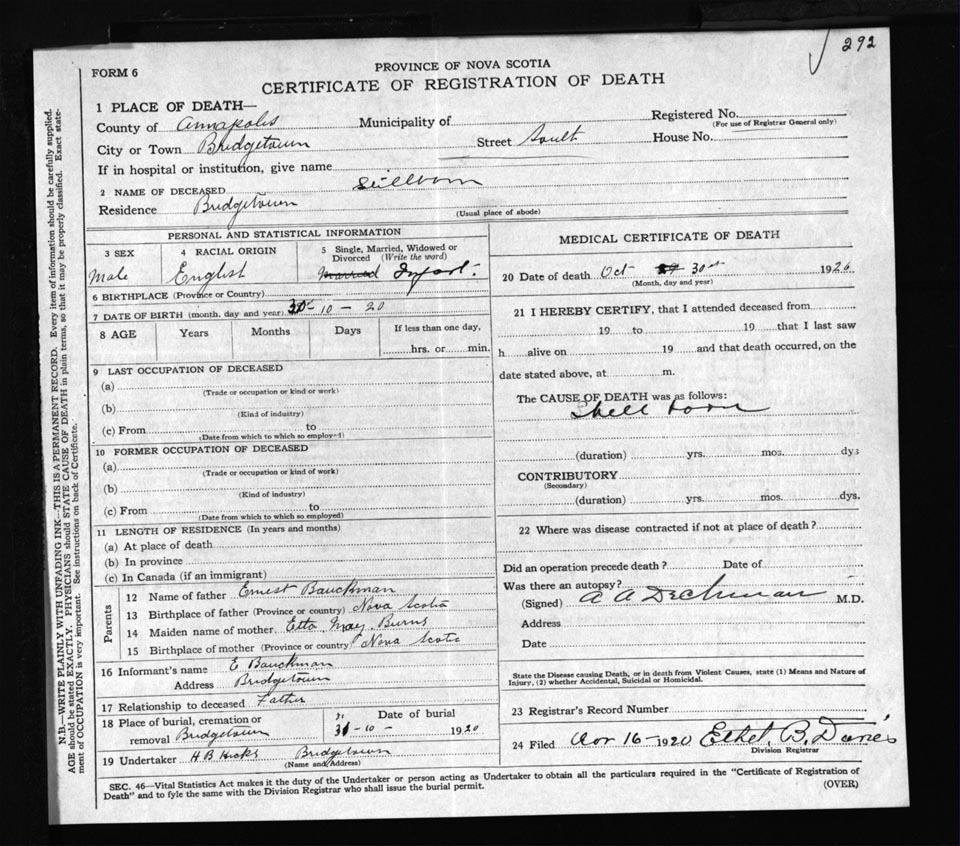 292
FORM 6
PROVINCE OF NOVA SCOTIA
CERTIFICATE OF REGISTRATION OF DEATH
1 PLACE OF DEATH—
County of Annapolis Municipality of Registered No.
(For use of Registrar General only)
City or Town Bridgetown Street South House No.
If in hospital or institution, give name
2 NAME OF DECEASED Stillborn
Residence Bridgetown
(Usual place of abode)
PERSONAL AND STATISTICAL INFORMATION
3 SEX 4 RACIAL ORIGIN 5 Single, Married, Widowed or Divorced (Write the word)
Male English Married Infant.
6 BIRTHPLACE (Province or Country)
7 DATE OF BIRTH (month, day and year) 30-10-20
8 AGE Years Months Days If less than one day,
hrs. or min.
9 LAST OCCUPATION OF DECEASED
(a)
(Trade or occupation or kind or work)
(b)
(Kind of industry)
(c) From to
(Date from which to which so employed)
10 FORMER OCCUPATION OF DECEASED
(a)
(Trade or occupation or kind of work)
(b)
(Kind of industry)
(c) From to
(Date from which to which so employed)
11 LENGTH OF RESIDENCE (In years and months)
(a) At place of death
(b) In province
(c) In Canada (if an immigrant)
Parents
12 Name of father Ernest Bauckman
13 Birthplace of father (Province or country) Nova Scotia
14 Maiden name of mother Etta May Burns
15 Birthplace of mother (Province or country) Nova Scotia
16 Informant's name E Bauckman
Address Bridgetown
17 Relationship to deceased Father
18 Place of burial, cremation or removal Bridgetown
Date of burial
31-10-1920
19 Undertaker H B Hicks Bridgetown
(Name and Address)
MEDICAL CERTIFICATE OF DEATH
20 Date of death Oct 30 1920
(Month, day and year)
21 I HEREBY CERTIFY, that I attended deceased from
19 to 19 that I last saw
h alive on 19 and that death occurred, on the
date stated above, at m.
The CAUSE OF DEATH was as follows:
Still born
(duration) yrs. mos. dys
CONTRIBUTORY
(Secondary)
(duration) yrs. mos. dys.
22 Where was disease contracted if not at place of death?
Did an operation precede death? Date of
Was there an autopsy?
(Signed) A A Dechman M.D.
Address
Date
State the Disease causing Death, or in death from Violent Causes, state (1) Means and Nature of
Injury, (2) whether Accidental, Suicidal or Homicidal.
23 Registrar's Record Number
24 Filed Nov 16-1920 Ethel. B. Davies
Division Registrar
SEC. 46—Vital Statistics Act makes it the duty of the Undertaker or person acting as Undertaker to obtain all the particulars required in the "Certificate of Registration of
Death" and to fyle the same with the Division Registrar who shall issue the burial permit.
(OVER)
N.B.—WRITE PLAINLY WITH UNFADING INK—THIS IS A PERMANENT RECORD. Every item of information should be carefully supplied.
AGE should be stated EXACTLY. PHYSICIANS should STATE CAUSE OF DEATH in plain terms, so that it may be properly classified. Exact state-
ment of OCCUPATION is very important. See instructions on back of Certificate.